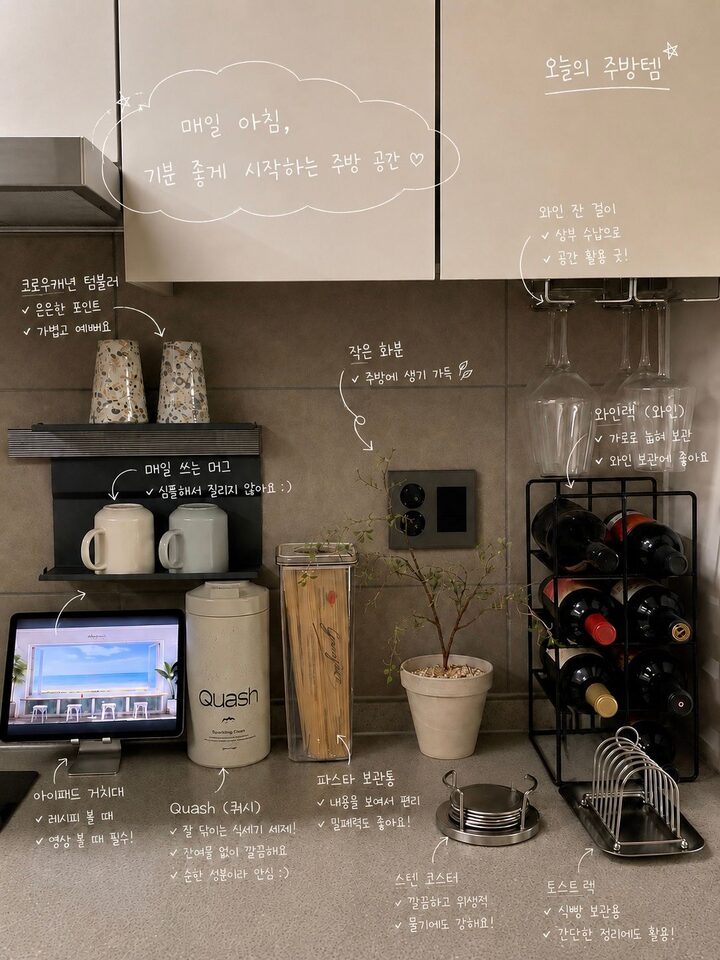 오늘의 주방템
매일 아침,
기분 좋게 시작하는 주방 공간♡
와인 잔 걸이
✓ 상부 수납으로
✓ 공간 활용 굿!
크로우캐년 텀블러
✓ 은은한 포인트
✓ 가볍고 예뻐요
작은 화분
✓ 주방에 생기 가득
와인랙 (와인)
✓ 가로로 눕혀 보관
✓ 와인 보관에 좋아요
매일 쓰는 머그
✓ 심플해서 질리지 않아요 :)
Quash
Sparkling Clean
아이패드 거치대
✓ 레시피 볼 때
✓ 영상 볼 때 필수!
Quash (쿼시)
✓ 잘 닦이는 식세기 세제!
✓ 잔여물 없이 깔끔해요
✓ 순한 성분이라 안심 :)
파스타 보관통
✓ 내용물 보여서 편리
✓ 밀폐력도 좋아요!
스텐 코스터
✓ 깔끔하고 위생적
✓ 물기에도 강해요!
토스트 랙
✓ 식빵 보관용
✓ 간단한 정리에도 활용!